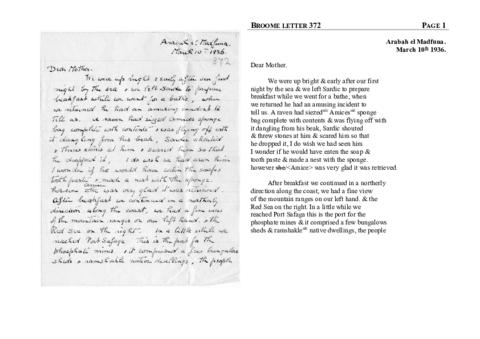 Arabah el Madfuna.
March 10th 1936.
372
Dear Mother.
We were up bright & early after our first
night by the sea & we left Sardic to prepare
breakfast while we went for a bathe, when
we returned he had an amusing incident to
tell us. A raven had siezed Amices sponge
bag complete with contents & was flying off with
it dangling from his beak, Sardic shouted
& threw stones at him & scared him so that
he dropped it, I do wish we had seen him
I wonder if he would have eaten the soap &
tooth paste & made a nest with the sponge.
Amice
however she was very glad it was retrieved.
After breakfast we continued in a northerly
direction along the coast, we had a fine view
of the mountain ranges on our left hand & the
Red Sea on the right. In a little while we
reached Port Safaga this is the port for the
phosphate mines & it comprised a few bungalows
sheds & ramshakle native dwellings, the people
BROOME LETTER 372 PAGE 1
Arabah el Madfuna.
March 10th 1936.
Dear Mother.
We were up bright & early after our first
night by the sea & we left Sardic to prepare
breakfast while we went for a bathe, when
we returned he had an amusing incident to
tell us. A raven had sierzd Amice's sponge
bag complete with contents & was flying off with
it dangling from his beak, Sardic shouted
& threw stones at him & scared him so that
he dropped it, I do wish we had seen him
I wonder if he would have eaten the soap &
tooth paste & made a nest with the sponge.
however she <Amice> was very glad it was retrieved.
After breakfast we continued in a northerly
direction along the coast, we had a fine view
of the mountain ranges on our left hand. & the
Red Sea on the right. In a little while we
reached Port Safaga this is the port for the
phosphate mines & it comprised a few bungalows
sheds & ramshakle native dwellings, the people